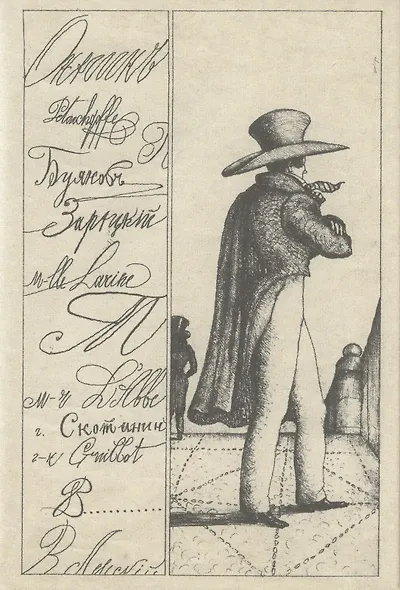 Онѣгинъ
Petouchoffe
Буяновъ
Зарѣцкій
m-lle Larine
T
м-r L'Abbe
г. Скотинин
г-н Guillot
В...........
В Ленскій